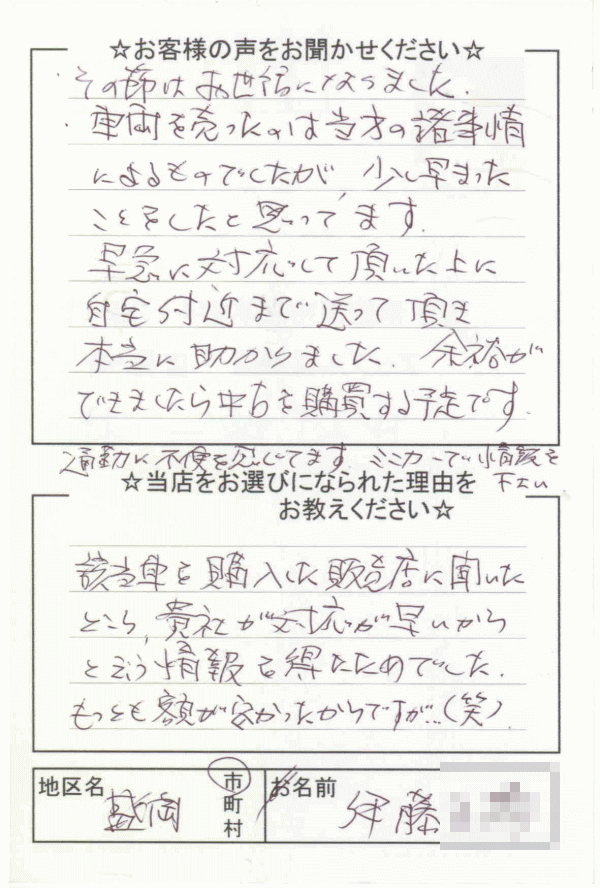 ☆お客様の声をお聞かせください☆
・その節はお世話になりました.
・車両を売ったのは当方の諸事情
によるものでしたが、少し早まった
ことをしたと思ってます.
早急に対応して頂いた上に
自宅付近まで送って頂き
本当に助かりました. 余裕が
できましたら中古を購買する予定です.
通勤に不便を感じてます. ミニカーでい情報を
下さい
☆当店をお選びになられた理由を
お教えください☆
該当車を購入した販売店に聞いた
ところ,貴社が対応が早いから
とゆう情報を得たためでした.
もっとも額が安かったからですが…(笑).
地区名
盛岡
市
町
村
お名前
伊藤